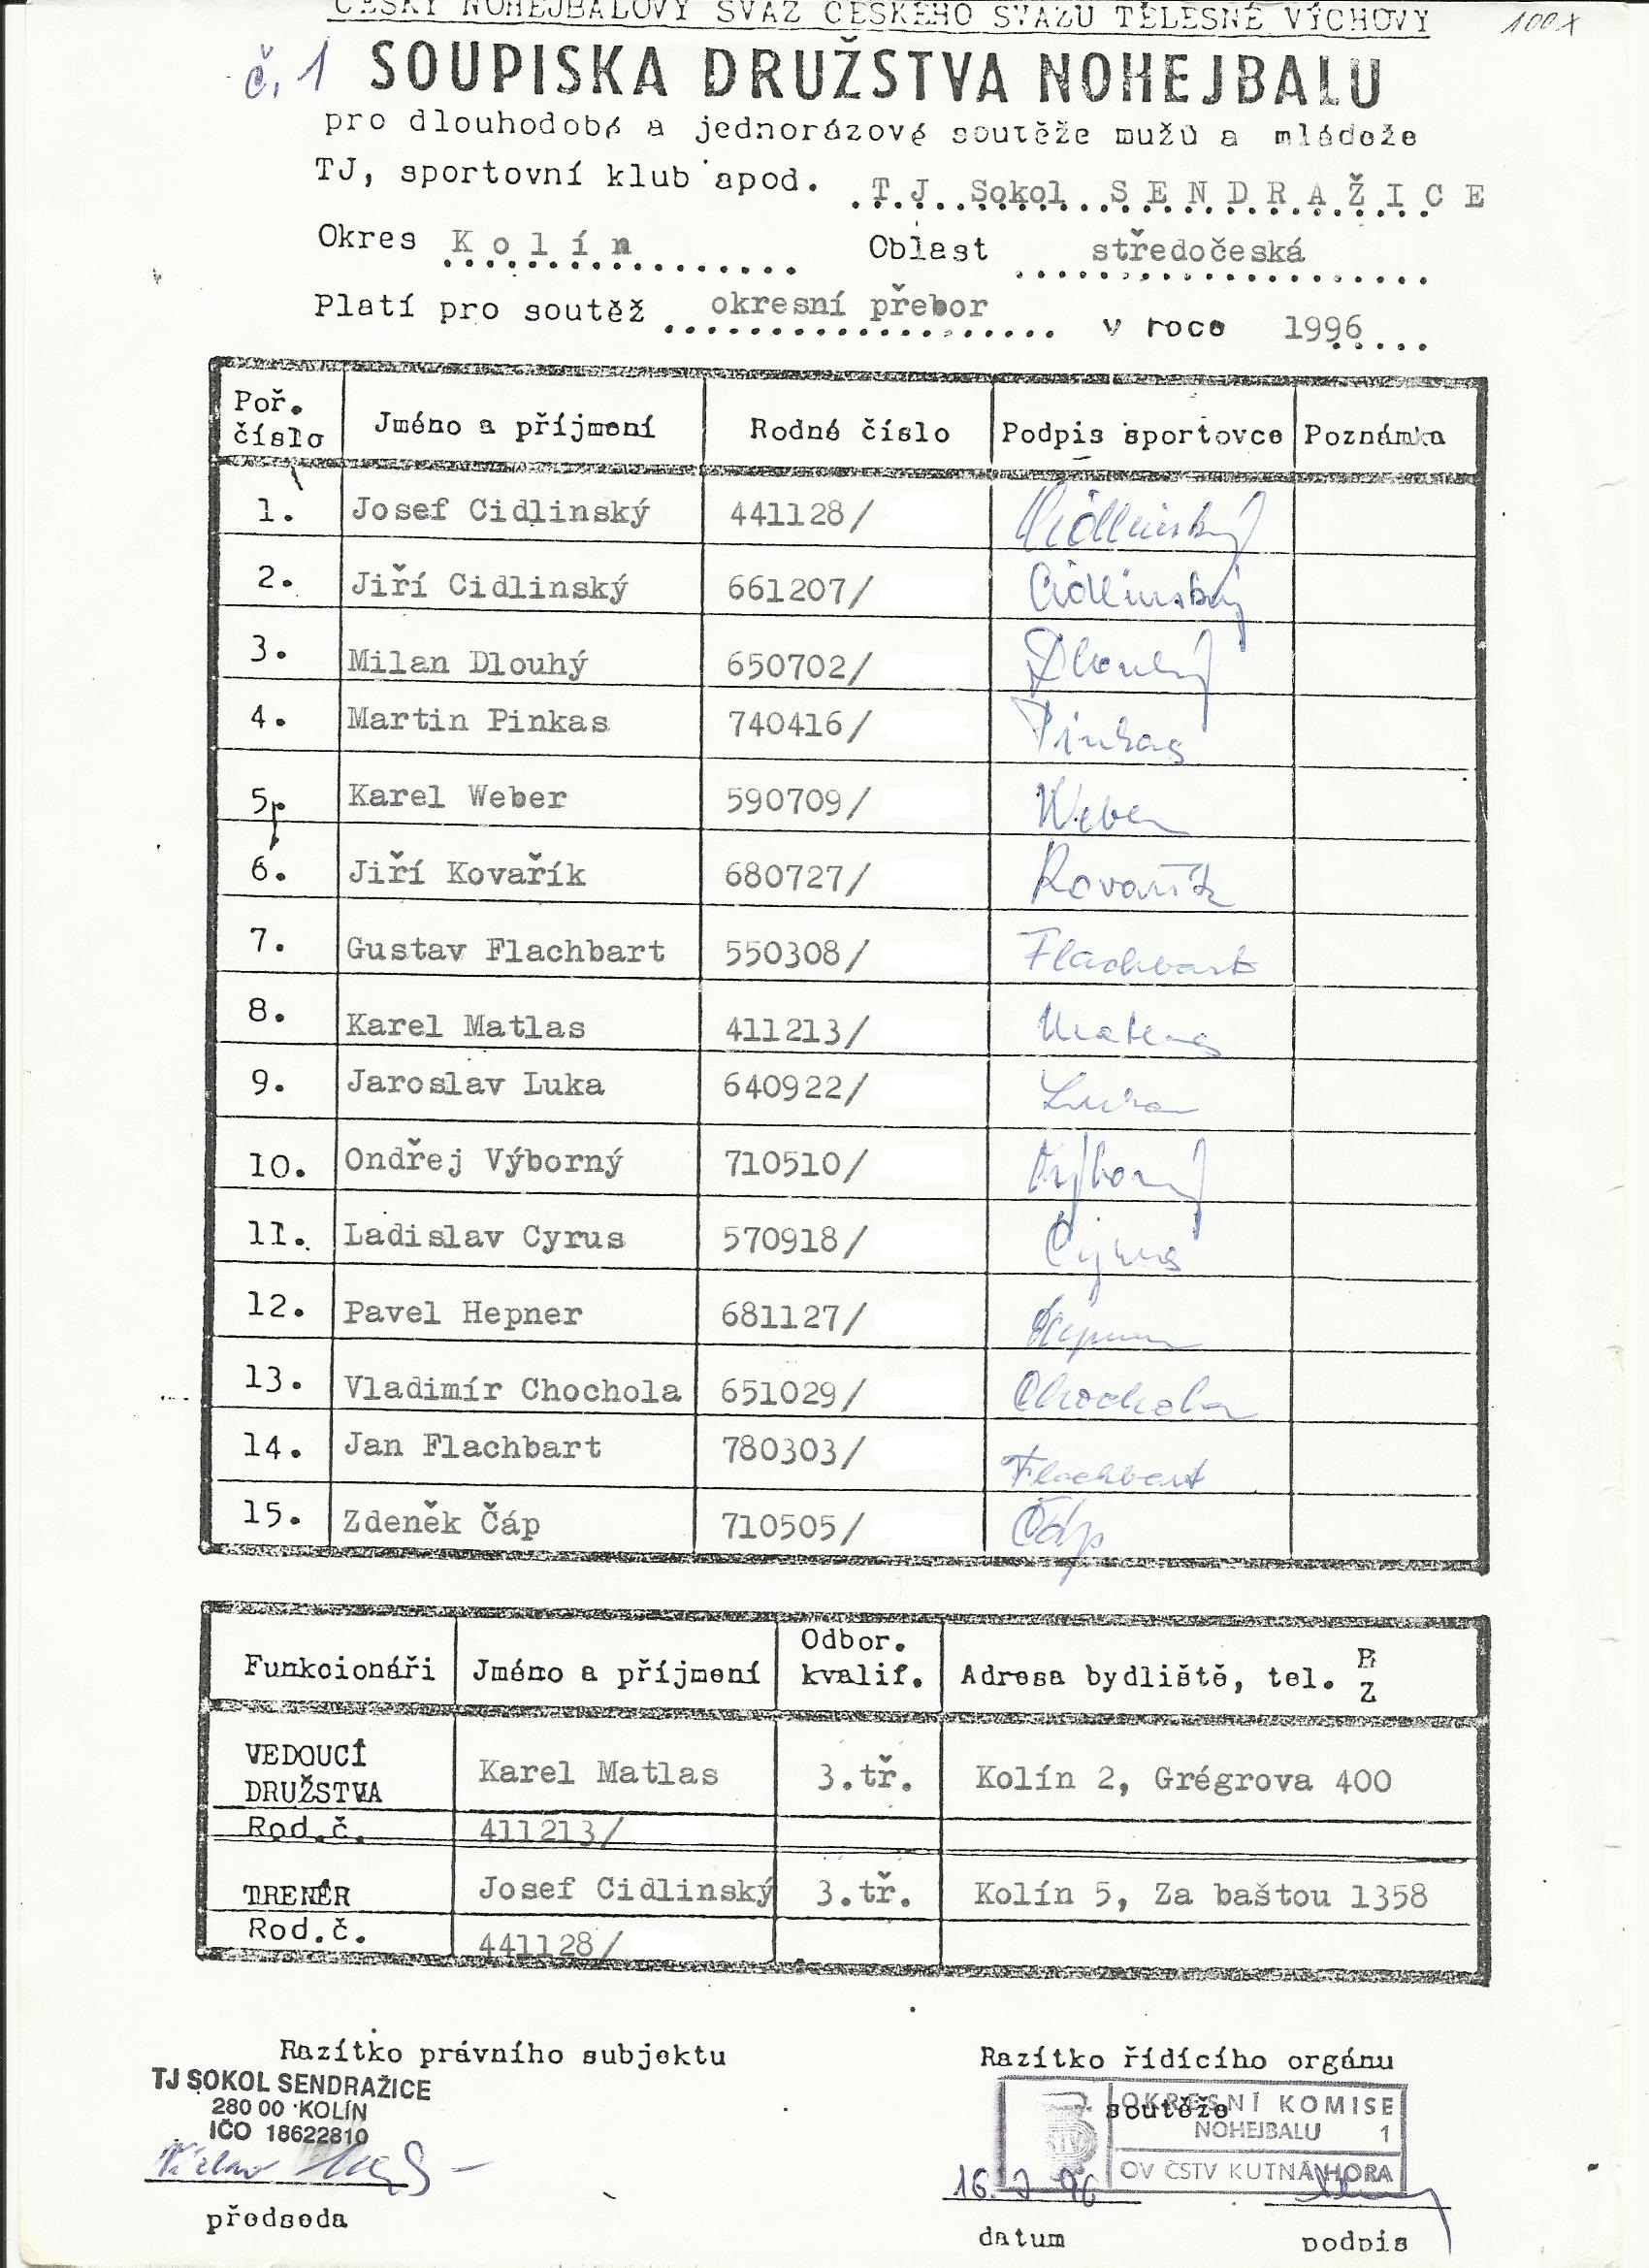 ČESKÝ NOHEJBALOVÝ SVAZ ČESKÉHO SVAZU TĚLESNÉ VÝCHOVY
100x
č. 1 SOUPISKA DRUŽSTVA NOHEJBALU
pro dlouhodobé a jednorázové soutěže mužů a mládeže
TJ, sportovní klub apod. TJ Sokol SENDRAŽICE
Okres Kolín Oblast středočeská
Platí pro soutěž okresní přebor v roce 1996
Poř. číslo Jméno a příjmení Rodné číslo Podpis sportovce Poznámka
1. Josef Cidlinský 441128/ Cidlinský
2. Jiří Cidlinský 661207/ Cidlinský
3. Milan Dlouhý 650702/ Dlouhý
4. Martin Pinkas 740416/ Pinkas
5. Karel Weber 590709/ Weber
6. Jiří Kovařík 680727/ Kovařík
7. Gustav Flachbart 550308/ Flachbart
8. Karel Matlas 411213/ Matlas
9. Jaroslav Luka 640922/ Luka
10. Ondřej Výborný 710510/ Výborný
11. Ladislav Cyrus 570918/ Cyrus
12. Pavel Hepner 681127/ Hepner
13. Vladimír Chochola 651029/ Chochola
14. Jan Flachbart 780303/ Flachbart
15. Zdeněk Čáp 710505/ Čáp
Funkcionáři Jméno a příjmení Odbor. kvalif. Adresa bydliště, tel. B Z
VEDOUCÍ DRUŽSTVA Karel Matlas 3.tř. Kolín 2, Grégrova 400
Rod.č. 411213/
TRENÉR Josef Cidlinský 3.tř. Kolín 5, Za baštou 1358
Rod.č. 441128/
Razítko právního subjektu
TJ SOKOL SENDRAŽICE
280 00 KOLÍN
IČO 18622810
Václav
předseda
Razítko řídícího orgánu
soutěže
OKRESNÍ KOMISE
NOHEJBALU 1
OV ČSTV KUTNÁ HORA
16. 2 96
datum podpis